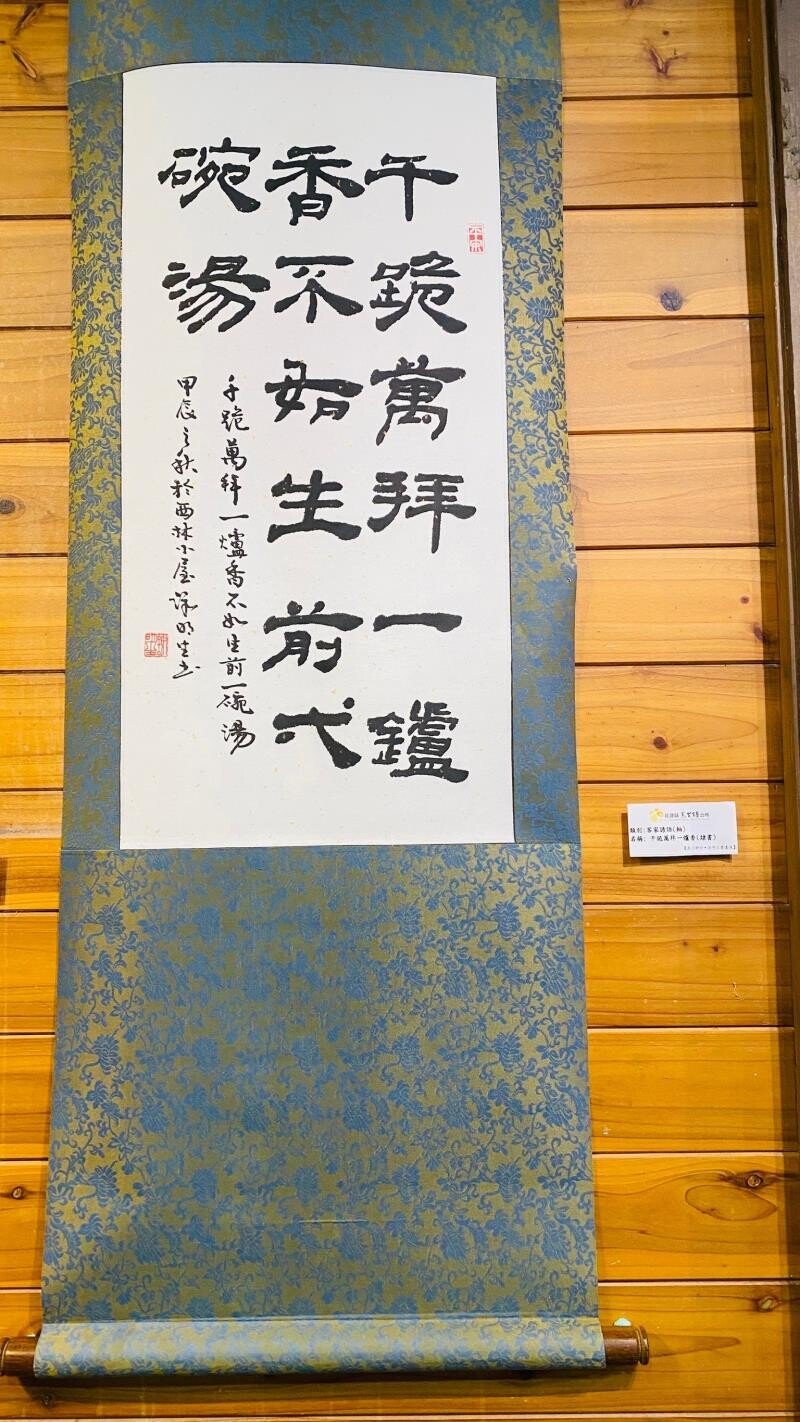 千跪萬拜一鑪
香不如生前弌
碗湯
千跪萬拜一爐香不如生前一碗湯
甲辰之秋於西林小屋明生书
公所
類別:客家諺語(軸)
名稱: 千跪萬拜一爐香(隸書)